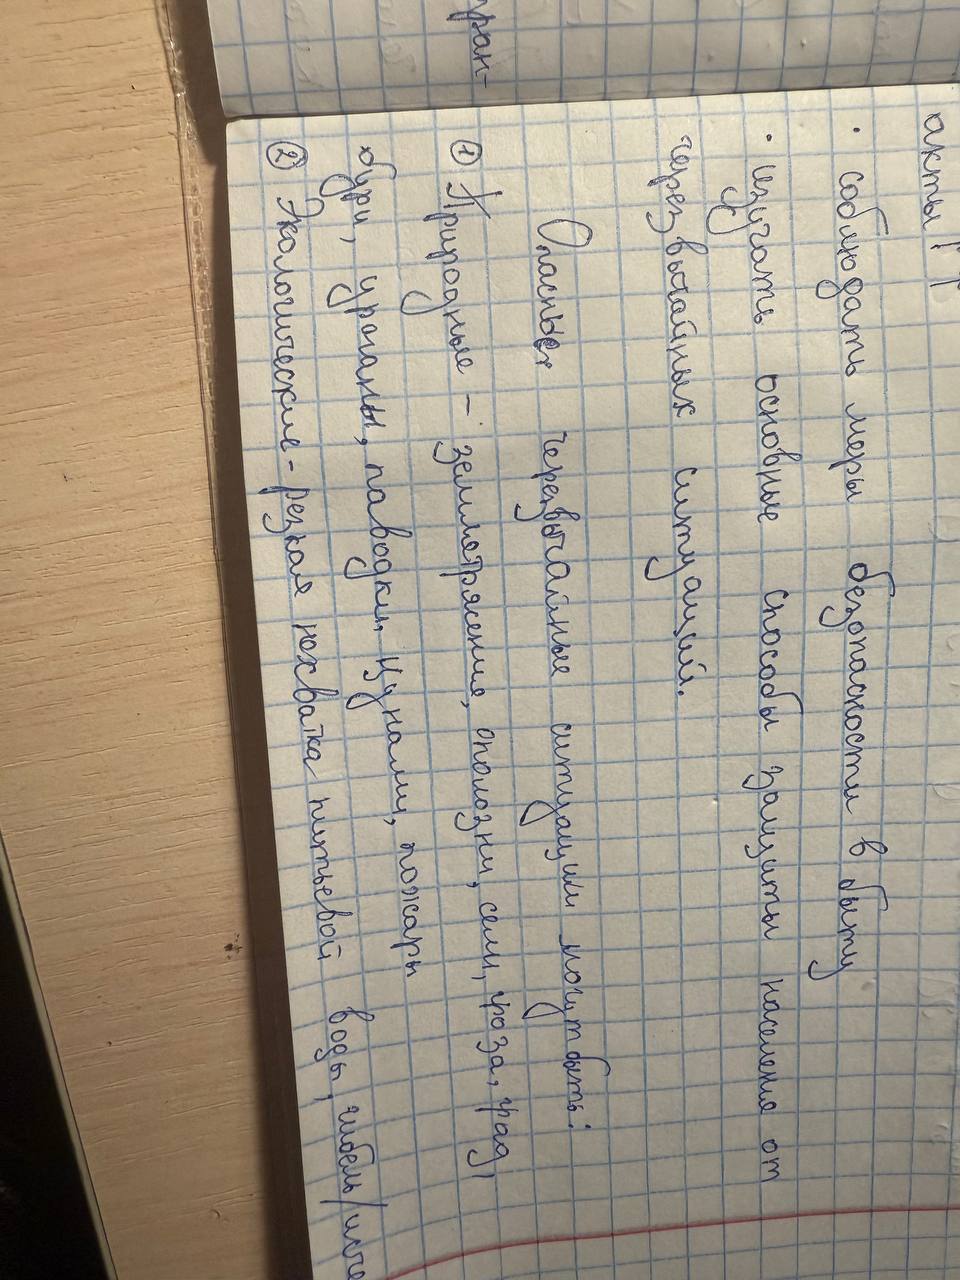 тран-
акты
• соблюдать меры безопасности в быту
• изучать основные способы защиты населения от
чрезвычайных ситуаций.
Опасные черезвычайные ситуации могут быть:
① Природные - землетрясение, оползни, сели, гроза, град,
бури, ураганы, паводки, цунами, пожары
② Экологические - резкая нехватка питьевой воды, гибель/исче